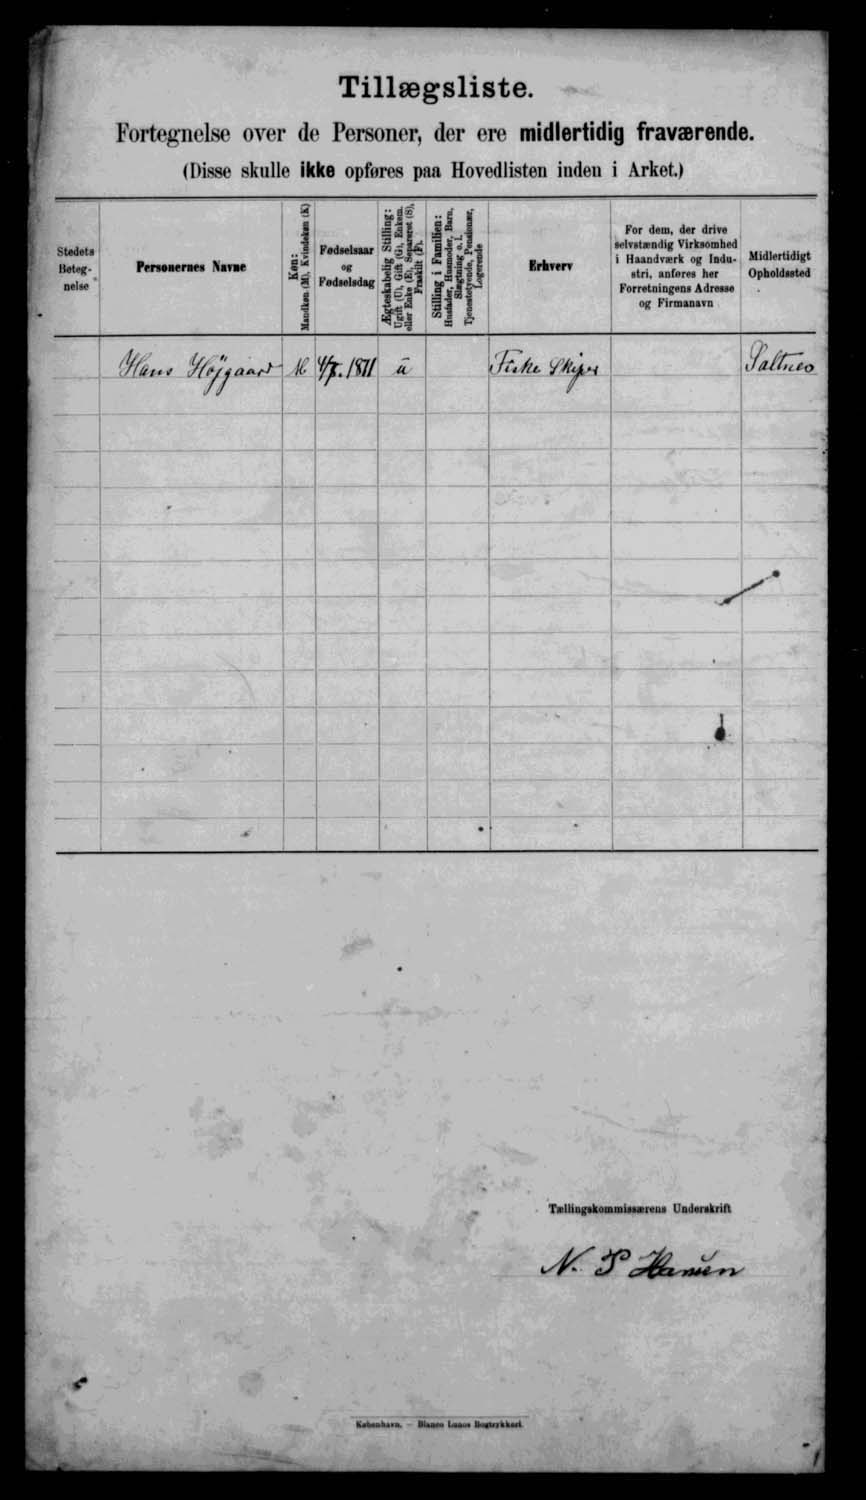 Tillægsliste.
Fortegnelse over de Personer, der ere midlertidig fraværende.
(Disse skulle ikke opføres paa Hovedlisten inden i Arket.)
Stedets
Beteg-
nelse
Personernes Navne
Køn:
Mandkøn (M), Kvindekøn (K)
Fødselsaar
og
Fødselsdag
Ægteskabelig Stilling:
Ugift (U), Gift (G), Enkem.
eller Enke (E), Separeret (S),
Fraskilt (F).
Stilling i Familien:
Husfader, Husmoder, Barn,
Slægtning o. l.
Tjenestetyende, Pensionær,
Logerende
Erhverv
For dem, der drive
selvstændig Virksomhed
i Haandværk og Indu-
stri, anføres her
Forretningens Adresse
og Firmanavn
Midlertidigt
Opholdssted
Hans Højgaard M 1871 u Fiske Skiper Saltnes
Tællingskommissærens Underskrift
N. P Hansen
København. – Bianco Lunos Bogtrykkeri.